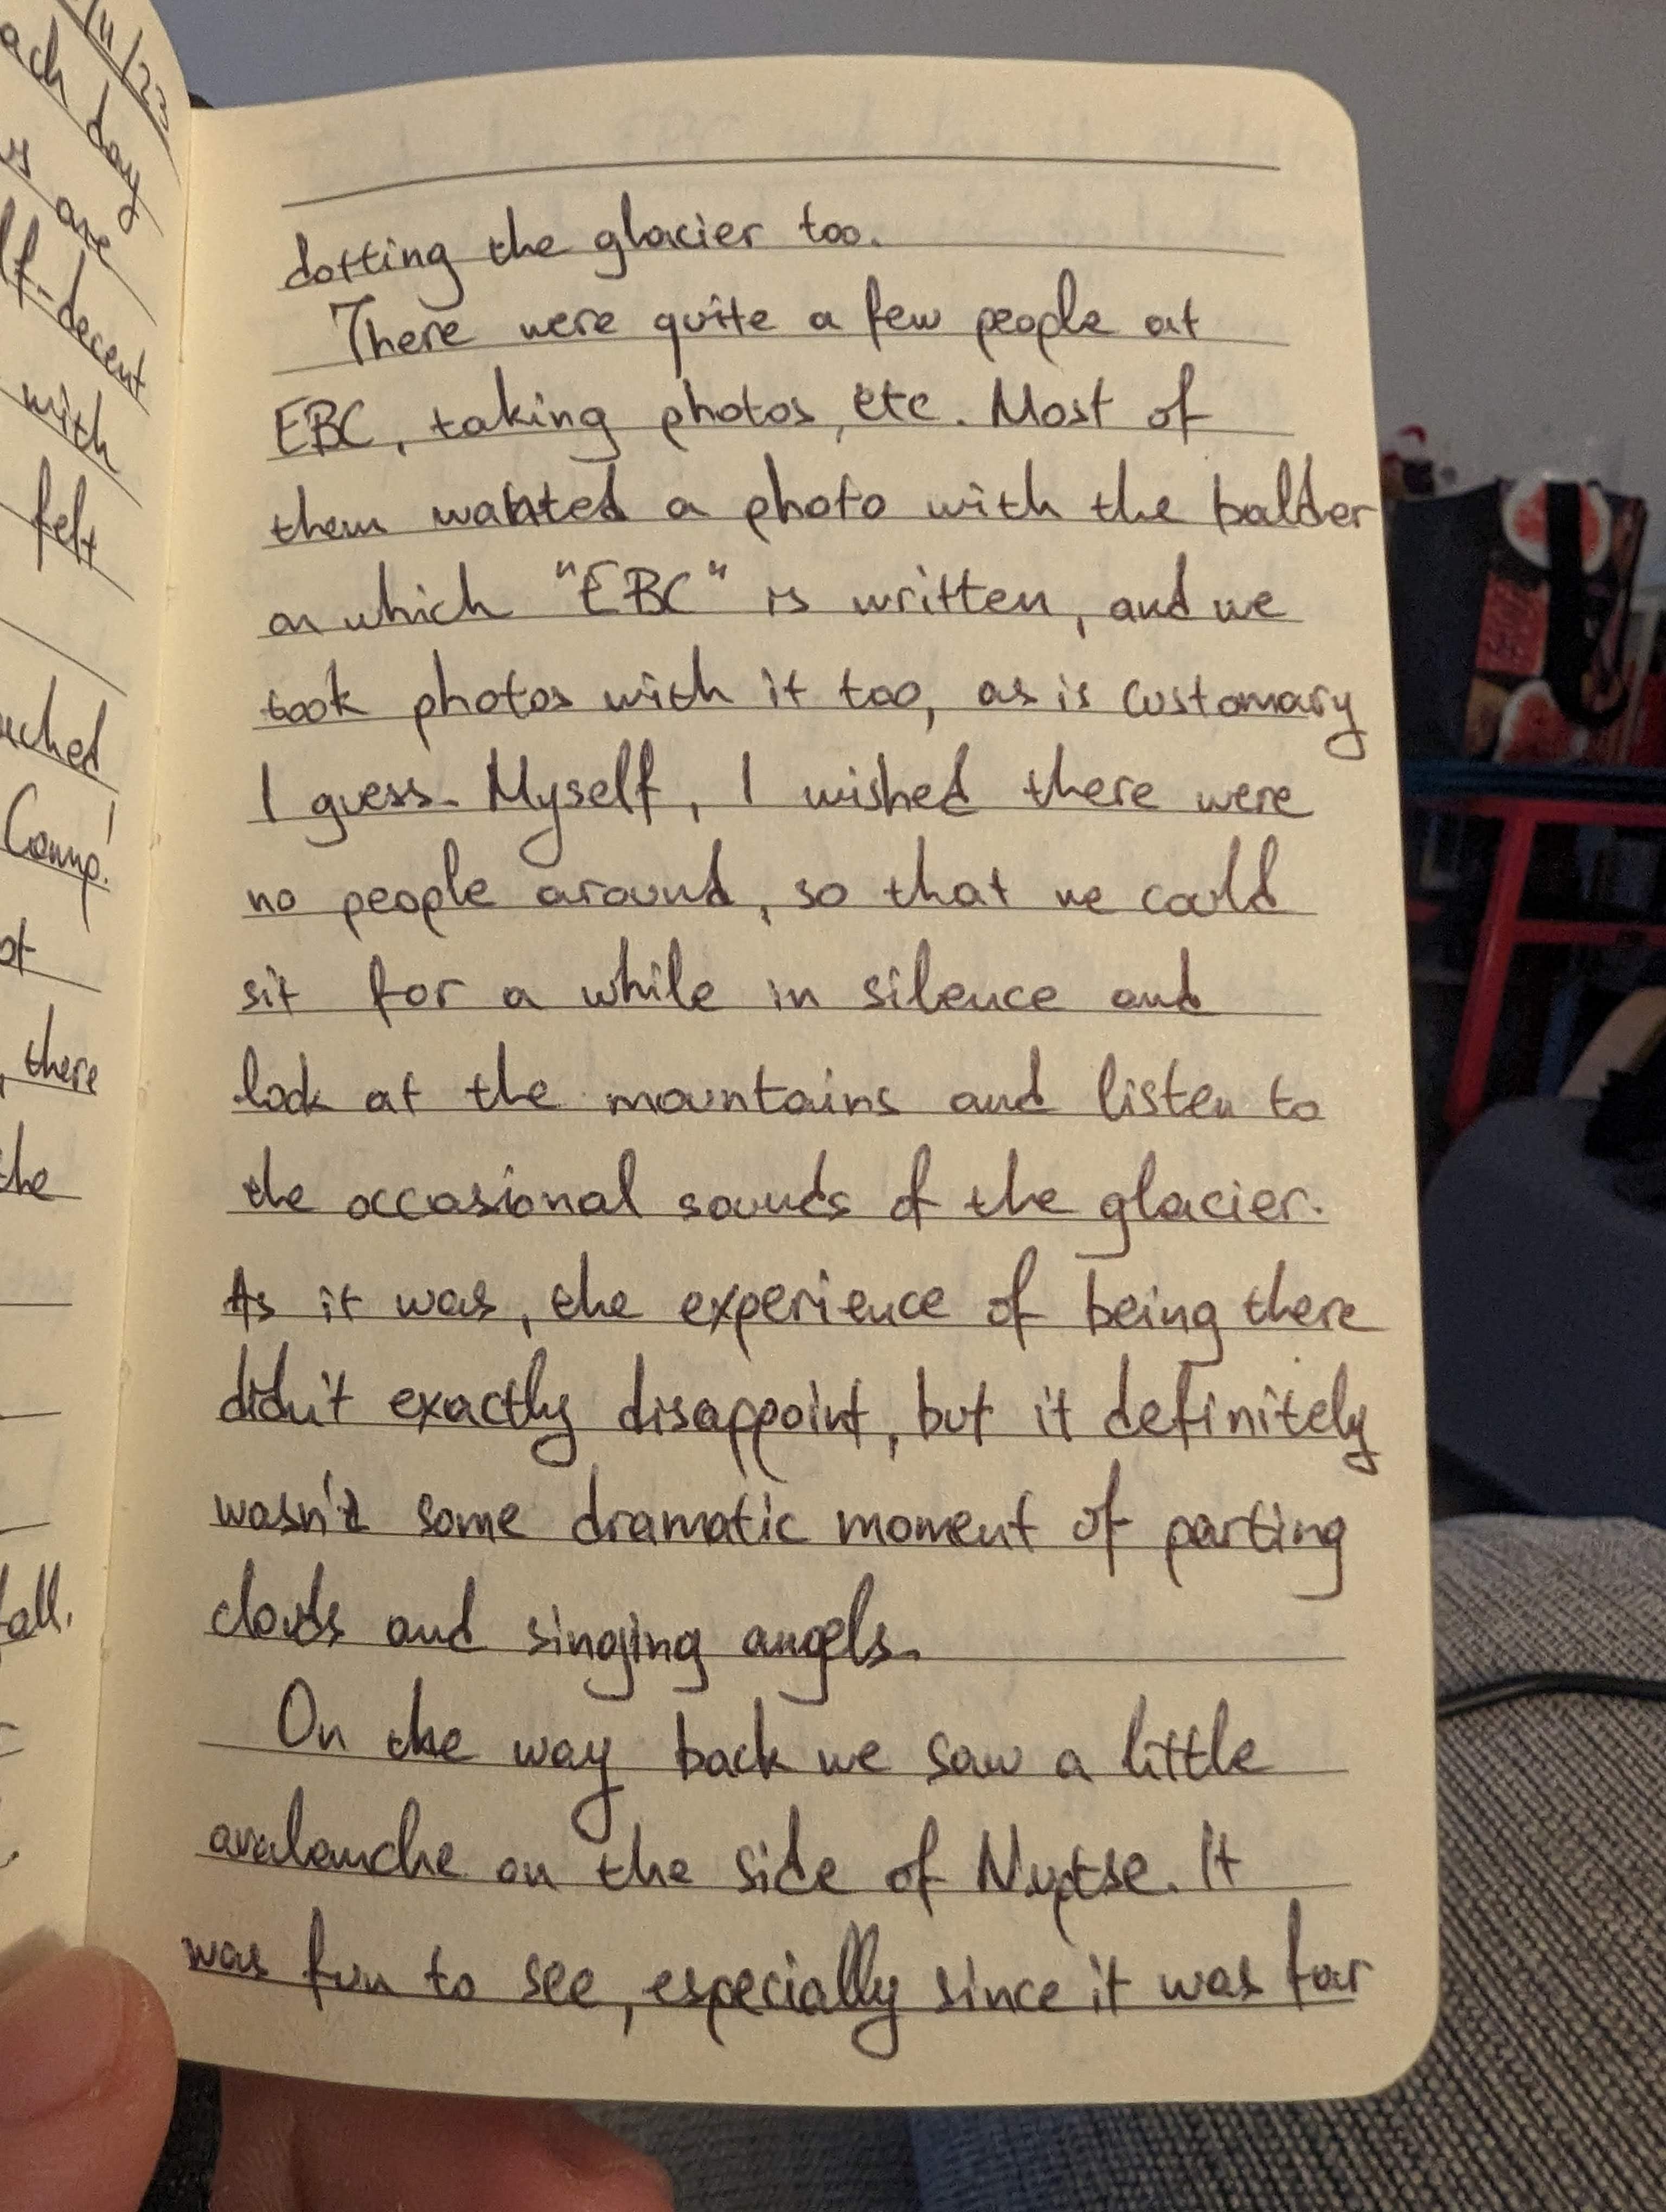 /11/23
ach day
are
lf-decent
with
felt
ached
Camp!
ot
, there
the
fall.
dotting the glacier too.
There were quite a few people at
EBC, taking photos, etc. Most of
them wanted a photo with the balder
on which "EBC" is written, and we
took photos with it too, as is customary
I guess. Myself, I wished there were
no people around, so that we could
sit for a while in silence and
look at the mountains and listen to
the occasional sounds of the glacier.
As it was, the experience of being there
didn't exactly disappoint, but it definitely
wasn't some dramatic moment of parting
clouds and singing angels.
On the way back we saw a little
avalanche on the side of Nuptse. It
was fun to see, especially since it was far